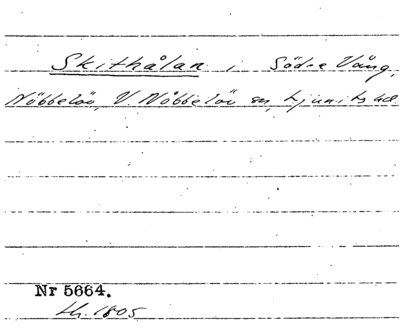 Skithålan i Södre Vång,
Nöbbelöv, V. Nöbbelöv sn, Ljunits hd
Nr 5664.
Lh. 1805